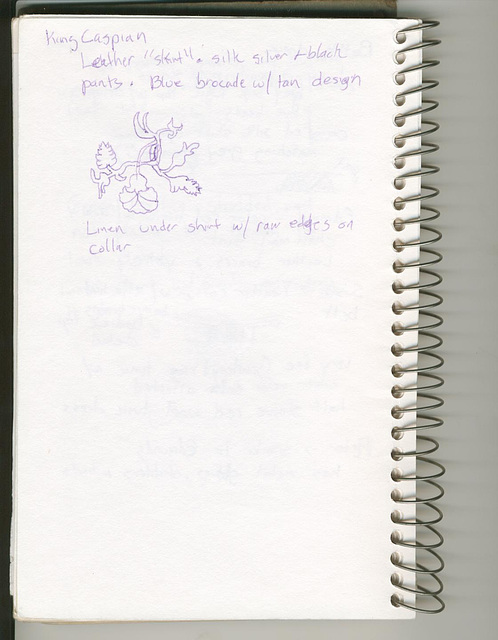 King Caspian
Leather "skirt". silk silver + black
pants. Blue brocade w/ tan design
Linen under shirt w/ raw edges on
collar